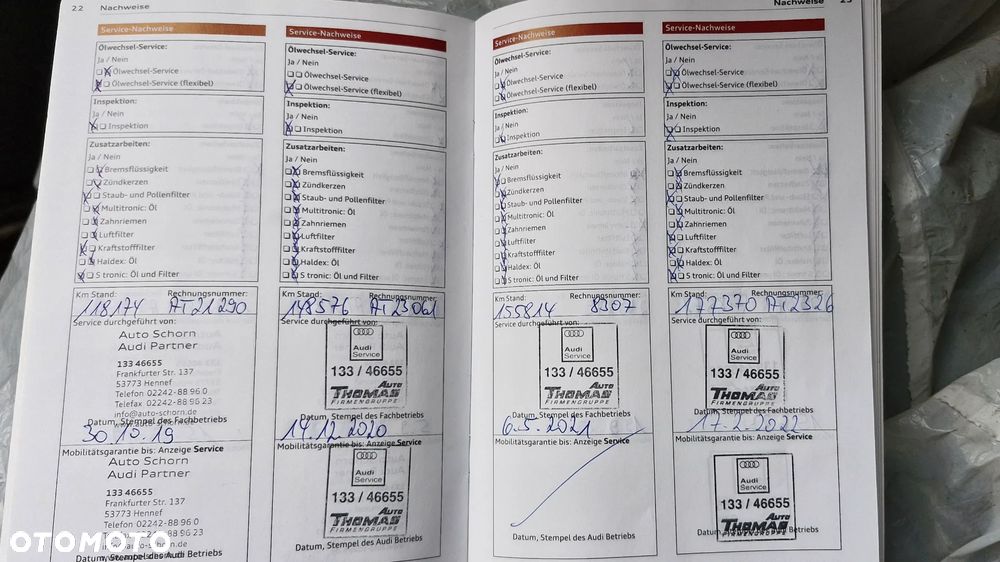 22 Nachweise
Service-Nachweise
Ölwechsel-Service:
Ja / Nein
Ölwechsel-Service
Ölwechsel-Service (flexibel)
Inspektion:
Ja / Nein
Inspektion
Zusatzarbeiten:
Ja / Nein
Bremsflüssigkeit
Zündkerzen
Staub- und Pollenfilter
Multitronic: Öl
Zahnriemen
Luftfilter
Kraftstofffilter
Haldex: Öl
S tronic: Öl und Filter
Km Stand: Rechnungsnummer:
118174 AT21290
Service durchgeführt von:
Auto Schorn
Audi Partner
133 46655
Frankfurter Str. 137
53773 Hennef
Telefon 02242-88 96 0
Telefax 02242-88 96 23
info@auto-schorn.de
Datum, Stempel des Fachbetriebs
30.10.19
Mobilitätsgarantie bis: Anzeige Service
Auto Schorn
Audi Partner
133 46655
Frankfurter Str. 137
53773 Hennef
Telefon 02242-88 96 0
Datum, Stempel des Audi Betriebs
Service-Nachweise
Ölwechsel-Service:
Ja / Nein
Ölwechsel-Service
Ölwechsel-Service (flexibel)
Inspektion:
Ja / Nein
Inspektion
Zusatzarbeiten:
Ja / Nein
Bremsflüssigkeit
Zündkerzen
Staub- und Pollenfilter
Multitronic: Öl
Zahnriemen
Luftfilter
Kraftstofffilter
Haldex: Öl
S tronic: Öl und Filter
Km Stand: Rechnungsnummer:
148576 AT23061
Service durchgeführt von:
Audi
Service
133 / 46655
Auto
THOMAS
FIRMENGRUPPE
Datum, Stempel des Fachbetriebs
14.12.2020
Mobilitätsgarantie bis: Anzeige Service
Audi
Service
133 / 46655
Auto
THOMAS
FIRMENGRUPPE
Datum, Stempel des Audi Betriebs
Nachweise 23
Service-Nachweise
Ölwechsel-Service:
Ja / Nein
Ölwechsel-Service
Ölwechsel-Service (flexibel)
Inspektion:
Ja / Nein
Inspektion
Zusatzarbeiten:
Ja / Nein
Bremsflüssigkeit
Zündkerzen
Staub- und Pollenfilter
Multitronic: Öl
Zahnriemen
Luftfilter
Kraftstofffilter
Haldex: Öl
S tronic: Öl und Filter
Km Stand: Rechnungsnummer:
155814 8307
Service durchgeführt von:
Audi
Service
133 / 46655
Auto
THOMAS
FIRMENGRUPPE
Datum, Stempel des Fachbetriebs
6.5.2021
Mobilitätsgarantie bis: Anzeige Service
Datum, Stempel des Audi Betriebs
Service-Nachweise
Ölwechsel-Service:
Ja / Nein
Ölwechsel-Service
Ölwechsel-Service (flexibel)
Inspektion:
Ja / Nein
Inspektion
Zusatzarbeiten:
Ja / Nein
Bremsflüssigkeit
Zündkerzen
Staub- und Pollenfilter
Multitronic: Öl
Zahnriemen
Luftfilter
Kraftstofffilter
Haldex: Öl
S tronic: Öl und Filter
Km Stand: Rechnungsnummer:
177370 AT2326
Service durchgeführt von:
Audi
Service
133 / 46655
Auto
THOMAS
FIRMENGRUPPE
Datum, Stempel des Fachbetriebs
17.2.2022
Mobilitätsgarantie bis: Anzeige Service
Audi
Service
133 / 46655
Auto
THOMAS
FIRMENGRUPPE
Datum, Stempel des Audi Betriebs
OTOMOTO